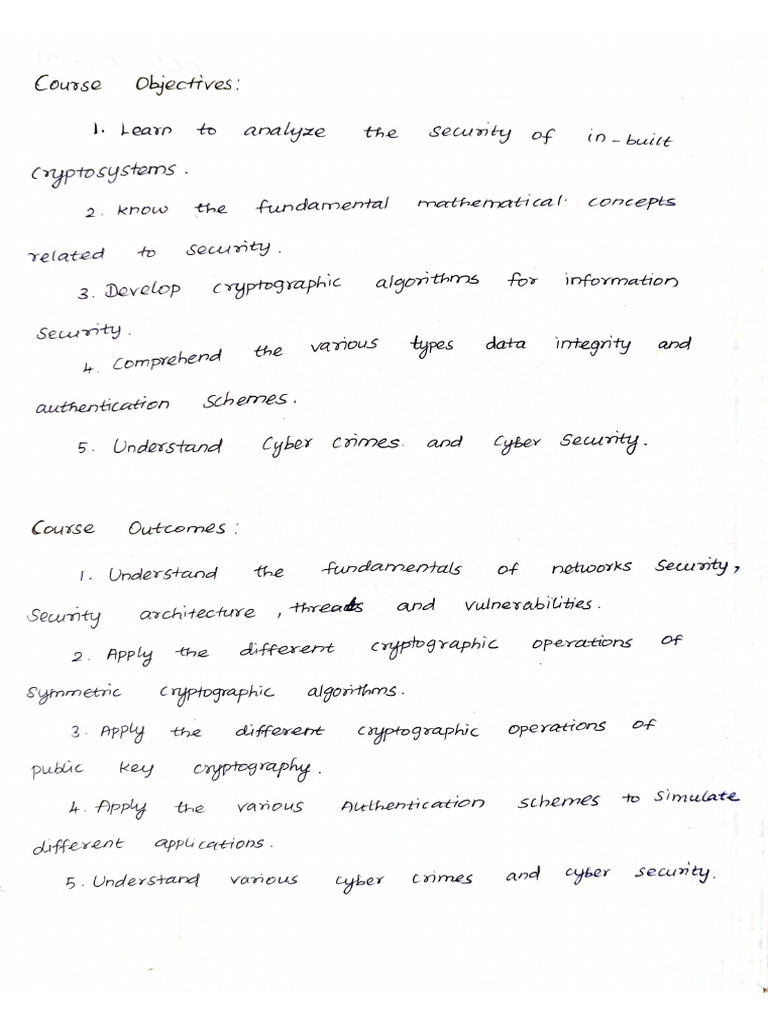 Course Objectives:
1. Learn to analyze the security of in-built
cryptosystems.
2. know the fundamental mathematical concepts
related to security.
3. Develop cryptographic algorithms for information
security.
4. Comprehend the various types data integrity and
authentication schemes.
5. Understand Cyber crimes and cyber security.
Course Outcomes:
1. Understand the fundamentals of networks security,
security architecture, threats and vulnerabilities.
2. Apply the different cryptographic operations of
symmetric cryptographic algorithms.
3. Apply the different cryptographic operations of
public key cryptography.
4. Apply the various Authentication schemes to simulate
different applications.
5. Understand various cyber crimes and cyber security.